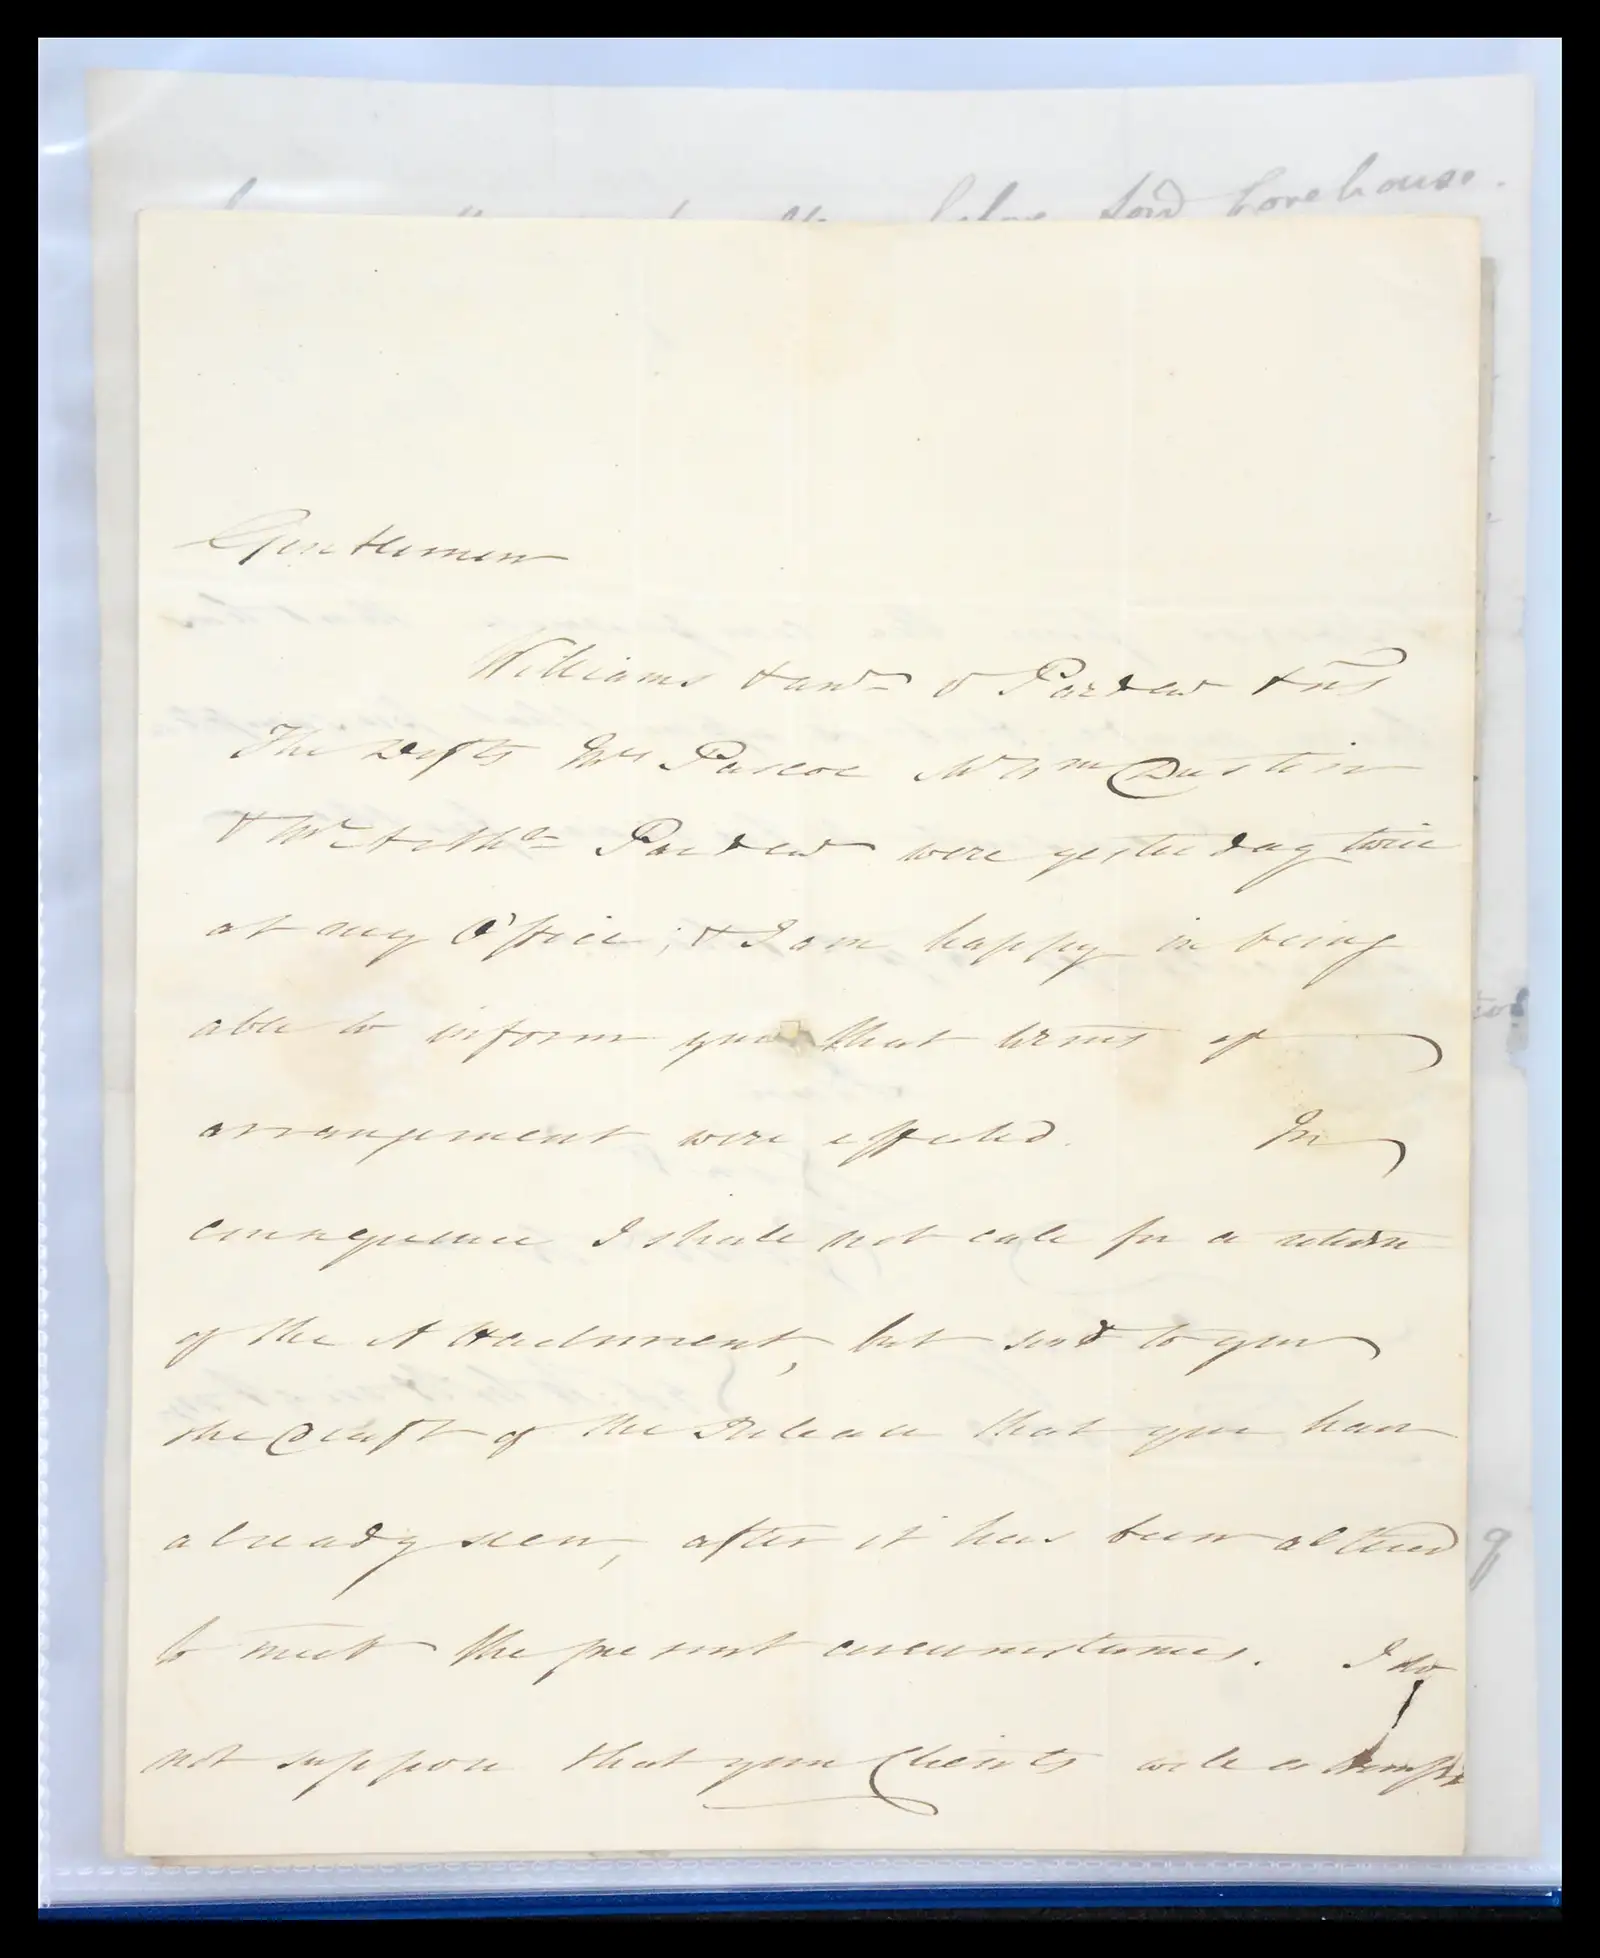 before said Corehouse.
Gentlemen
Williams & anr v Pardew & ors
The Defts Mrs Pascoe Mr Wm Dustin
& Mr Pardew were yesterday twice
at my Office; & I am happy in being
able to inform you that terms of
arrangement were effected. In
consequence I shall not call for a return
of the Attachment, but send to you
the Draft of the Release that you have
already seen, after it has been altered
to meet the present circumstances. I do
not suppose that your Clients will attempt